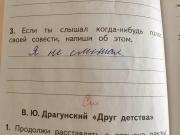 3. Если ты слышал когда-нибудь голос
своей совести, напиши об этом.
Я не слышал
См
В. Ю. Драгунский «Друг детства»
1. Продолжи расставлять